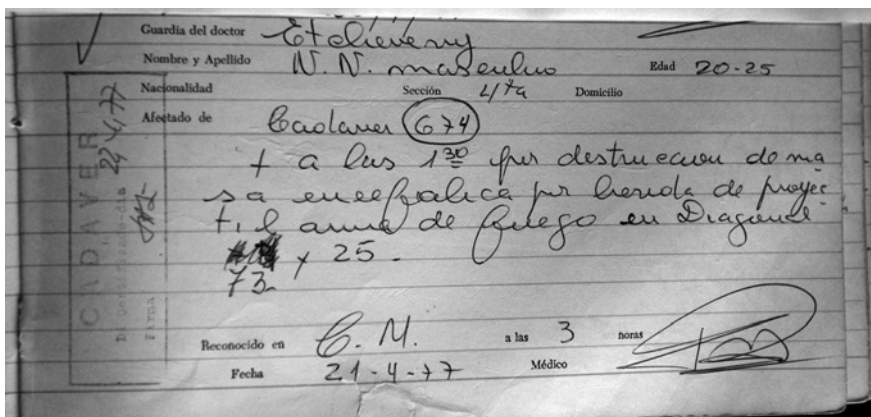 Guardia del doctor Etcheverry
Nombre y Apellido N.N. masculino Edad 20-25
Nacionalidad Sección 4ta Domicilio
Afectado de Cadaver 674
+ a las 1 30 por destruccion de ma
sa encefalica por herida de proyec
til arma de fuego en Diagonal
73 y 25.
Reconocido en C.M. a las 3 horas
Fecha 21-4-77 Médico
CADAVER
Di certificando-dia
Firma